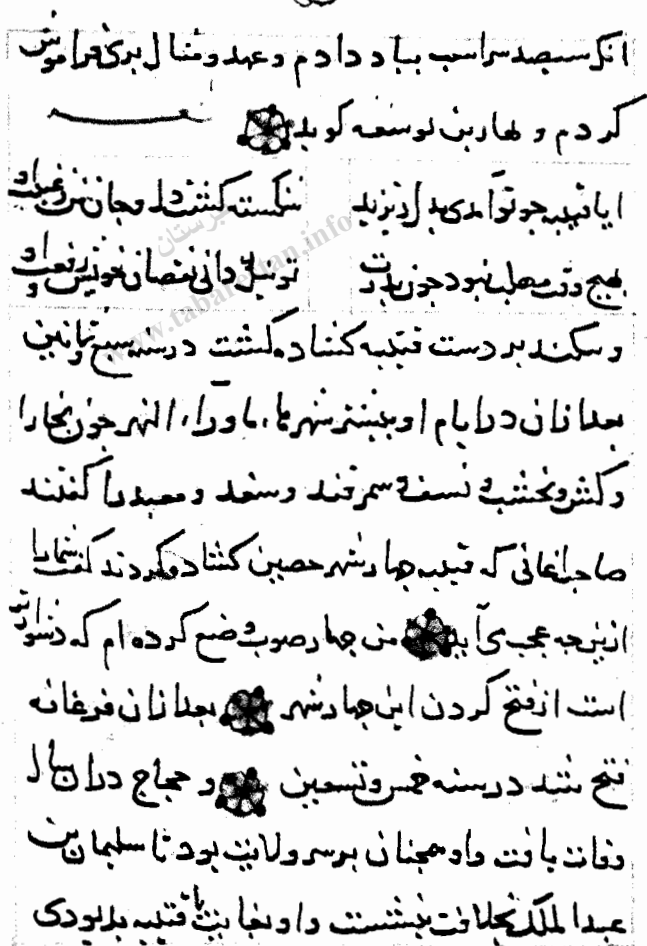 انک سیصد سر اسب بباد دادم و عهد و مثال برگ فراموش
کردم و نهار بن توسعه گوید
ایا قتیبه چو تو آمدی بدل دیزید
شکسته گشت دل و جان
بهیچ وقت نبود چون یدرت
تو نیک دانی نقصان خویش و
و بیکند بر دست قتیبه کشاده گشت در سنه سبع و ثمانین
بعد ازان در ایام او بیشتر شهرها، ماوراء النهر چون بخارا
و کش و نخشب و نسف و سمرقند و سغد و معبد را گفتند
صاحب اغانی که قتیبه چهار شهر حصین کشاده کردند گفت شما را
ازین چه عجب می آید من چهار صوب وضع کرده ام که دشوارتر
است از فتح کردن این چهار شهر بعد ازان فرغانه
فتح شد در سنه خمس و تسعین و حجاج در ان سال
وفات یافت و او همچنان بر سر ولایت بود تا سلیمان بن
عبد الملک بخلافت بنشست و او بغایت با قتیبه بد بودی
www.tabarestan.info
تبرستان